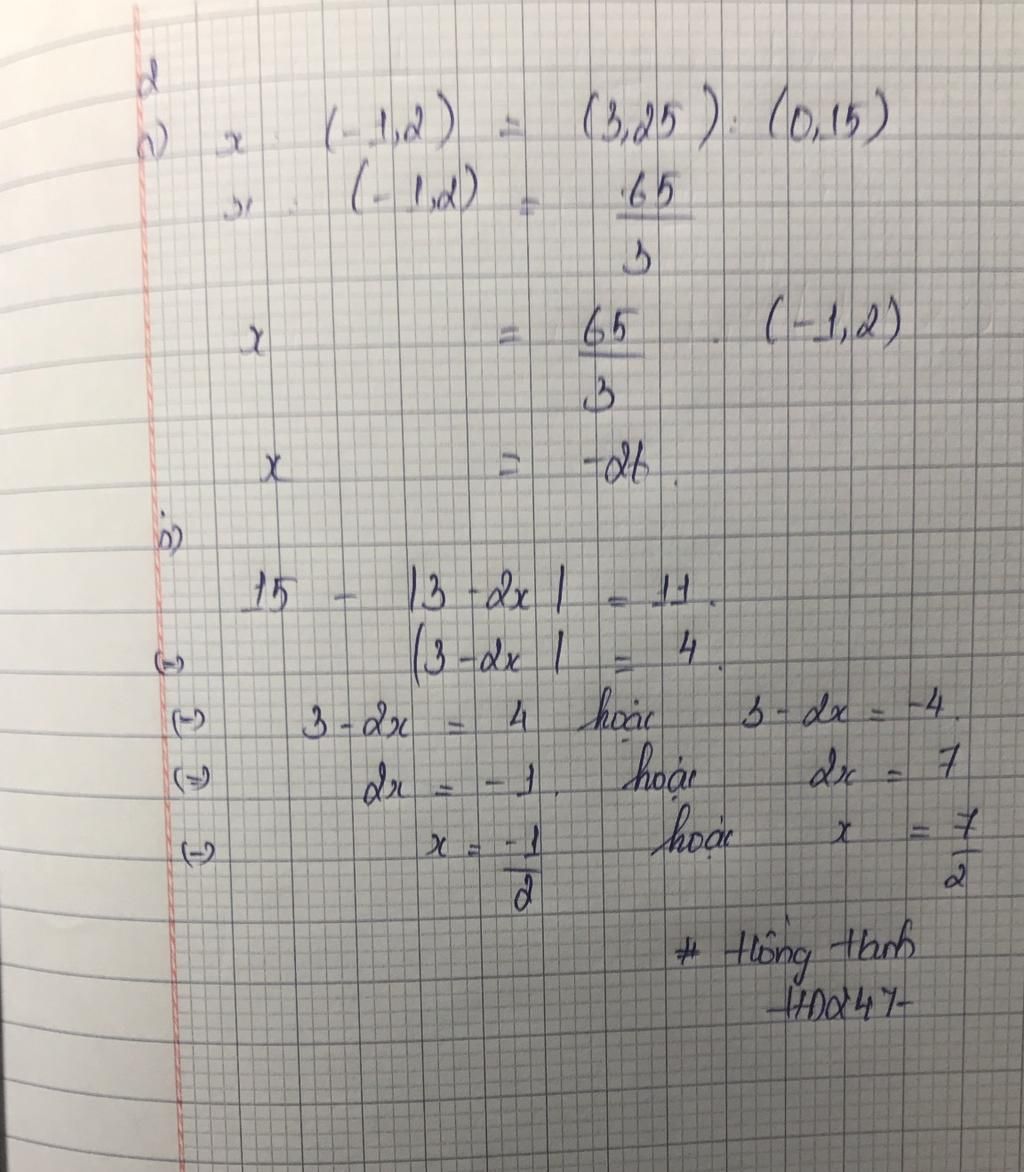 2
a) x : (-1,2) = (3,25) : (0,15)
x : (-1,2) = 65/3
x = 65/3 . (-1,2)
x = -26.
b)
15 - |3-2x| = 11.
(=) |3-2x| = 4.
(=) 3-2x = 4 hoặc 3-2x = -4.
(=) 2x = -1. hoặc 2x = 7
(=) x = -1/2 hoặc x = 7/2
# Hồng Hanh
-HD247-